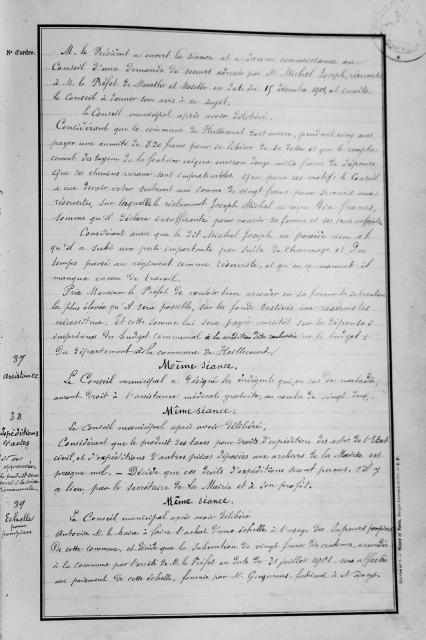 N° d'ordre.
M. le Président a ouvert la séance et a donné connaissance au
Conseil d'une demande de secours adressée par M. Michel Joseph, réserviste
à M. le Préfet de Meurthe et Moselle en date du 15 décembre 1901, et invite
le Conseil à donner son avis à ce sujet.
Le Conseil municipal après avoir délibéré.
Considérant que la commune de Heillecourt doit encore, pendant cinq ans,
payer une annuité de 820 francs pour se libérer de sa dette et que le rempla-
cement des tuyaux de la fontaine exigera environ douze mille francs de dépense
Que les chemins ruraux sont impraticables. Que pour ces motifs le Conseil
a cru devoir voter seulement une somme de vingt francs pour secours aux
réservistes, sur laquelle le réclamant Joseph Michel a reçu dix francs,
somme qu'il déclare insuffisante pour nourrir sa femme et ses trois enfants
Considérant aussi que le dit Michel Joseph ne possède rien et
qu'il a subi une perte importante par suite de chômage et du
temps passé au régiment comme réserviste, et qu'en ce moment il
manque encore de travail.
Prie Monsieur le Préfet de vouloir bien accorder en sa faveur la subvention
la plus élevée qu'il sera possible, sur les fonds destinés aux réservistes
nécessiteux. Et cette somme lui sera payée aussitôt sur les dépenses
imprévues du budget communal à la condition d'être sur le budget
du département à la commune de Heillecourt.
37
Assistance
Même séance.
Le Conseil municipal a désigné les indigents qui, en cas de maladie,
auront droit à l'assistance médicale gratuite, au nombre de vingt deux.
38
Expéditions
d'actes
Non
approuvée
Même séance.
Le Conseil municipal après avoir délibéré.
Considérant que le produit des taxes pour droits d'expédition des actes de l'Etat
civil, et d'expéditions d'autres pièces déposées aux archives de la Mairie est
presque nul. – Décide que ces droits d'expéditions seront perçus, s'il y
a lieu, par le secrétaire de la Mairie et à son profit.
39
Echelle
pour
pompiers
Même séance.
Le Conseil municipal après avoir délibéré
Autorise M. le Maire à faire l'achat d'une échelle à l'usage des sapeurs pompiers
de cette commune, et décide que la subvention de vingt francs dix centimes, accordée
à la commune par l'arrêté de M. le Préfet en date du 31 juillet 1901 sera affectée
au paiement de cette échelle, fournie par M. Gugumus, fabricant à Nancy.